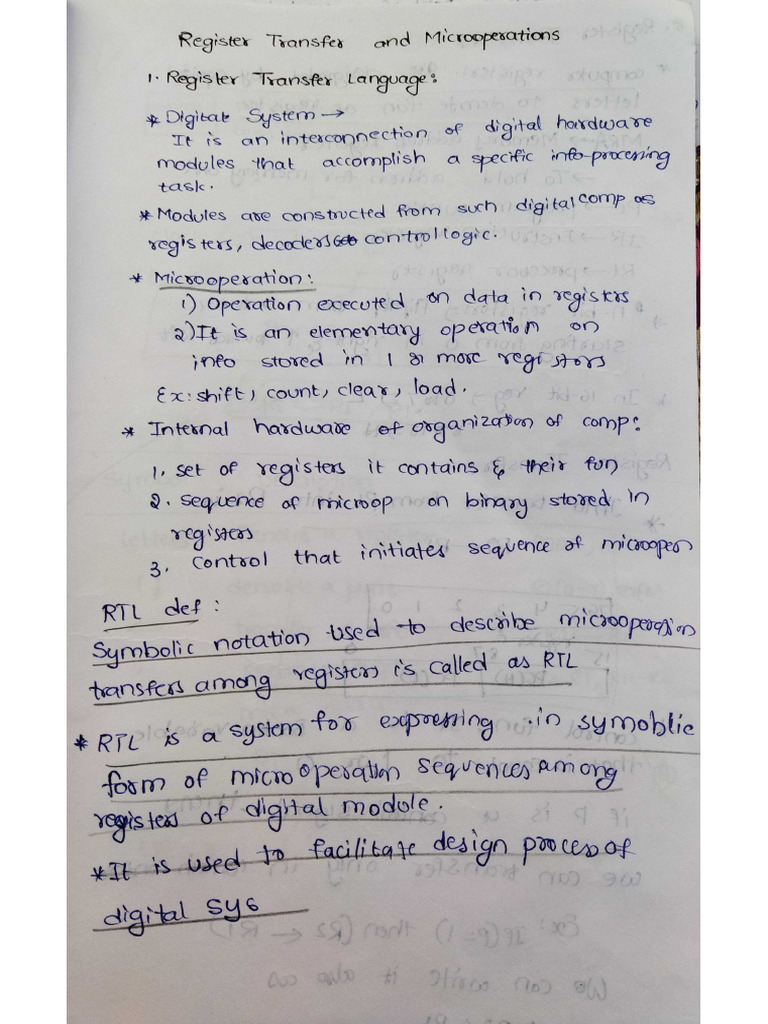 Register Transfer and Microoperations
1. Register Transfer Language:
* Digital System →
It is an interconnection of digital hardware
modules that accomplish a specific info-processing
task.
* Modules are constructed from such digital comp as
registers, decoders control logic.
* Microoperation:
1) Operation executed on data in registers
2) It is an elementary operation on
info stored in 1 or more registors
Ex: shift, count, clear, load.
* Internal hardware of organization of comp:
1. set of registers it contains & their fun
2. sequence of microop on binary stored in
registers
3. control that initiates sequence of microopen
RTL def:
Symbolic notation used to describe microoperation
transfers among registers is called as RTL
* RTL is a system for expressing in symoblic
form of microoperation sequences among
registers of digital module.
* It is used to facilitate design process of
digital sys